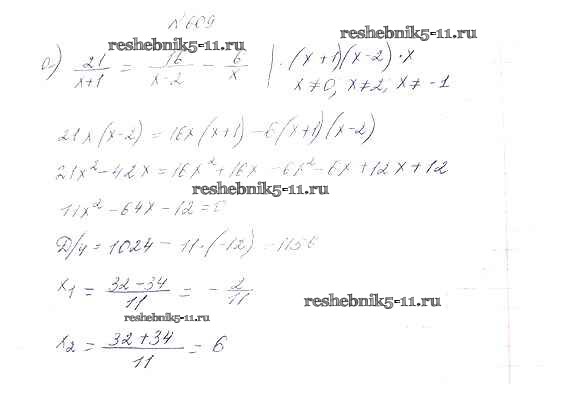 №609
reshebnik5-11.ru
reshebnik5-11.ru
а) 21/(x+1) = 16/(x-2) - 6/x | · (x+1)(x-2)·x
x≠0, x≠2, x≠-1
21x(x-2) = 16x(x+1) - 6(x+1)(x-2)
21x² - 42x = 16x² + 16x - 6x² - 6x + 12x + 12
reshebnik5-11.ru
11x² - 64x - 12 = 0
D/4 = 1024 - 11·(-12) = 1156
x₁ = (32-34)/11 = -2/11
reshebnik5-11.ru
reshebnik5-11.ru
x₂ = (32+34)/11 = 6